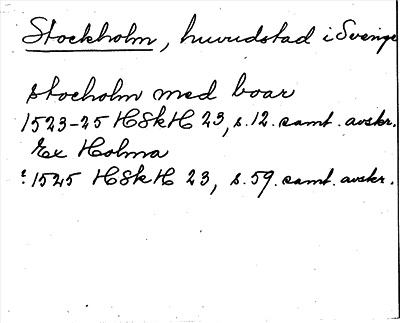 Stockholm, huvudstad i Sverige
stocholm med boar
1523-25 HSkH 23, s. 12. samt. avskr.
Ex Holma
: 1525 HSkH 23, s. 59. samt. avskr.